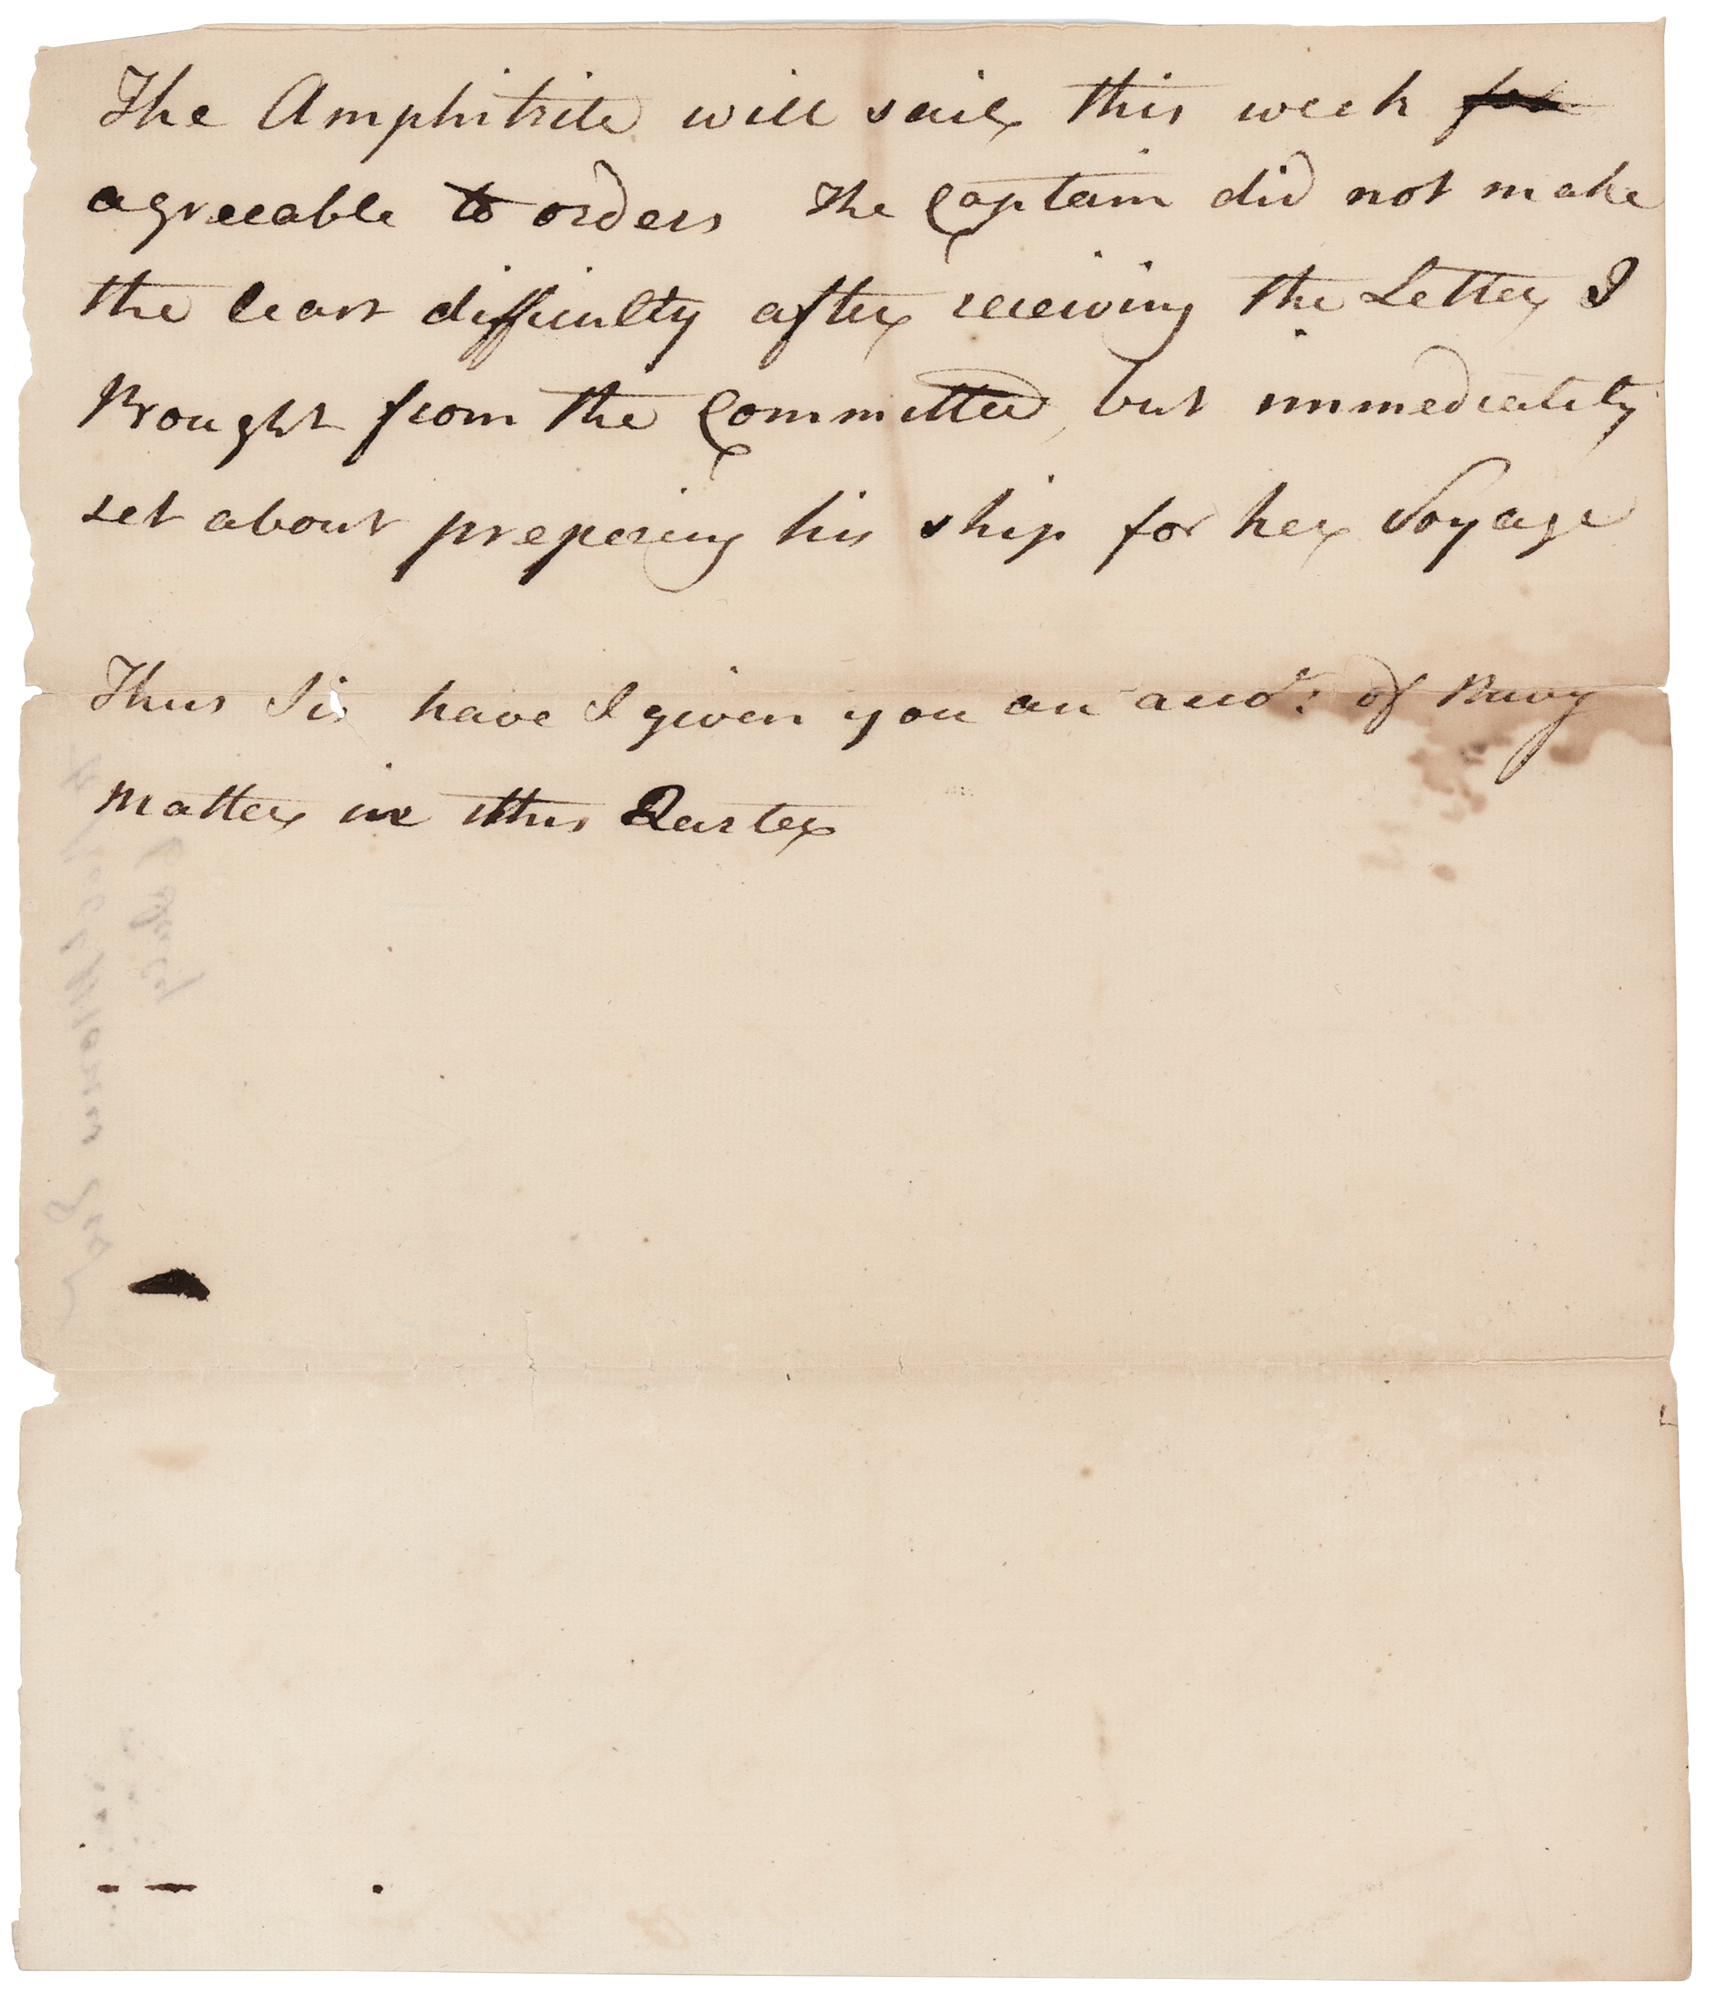 The Amphitrite will sail this week
agreeable to orders The Captain did not make
the least difficulty after receiving the Letter I
Brought from the Committee, but immediately
set about prepering his ship for her Voyage
Thus Sir have I given you an of Navy
Matter in this Quarter